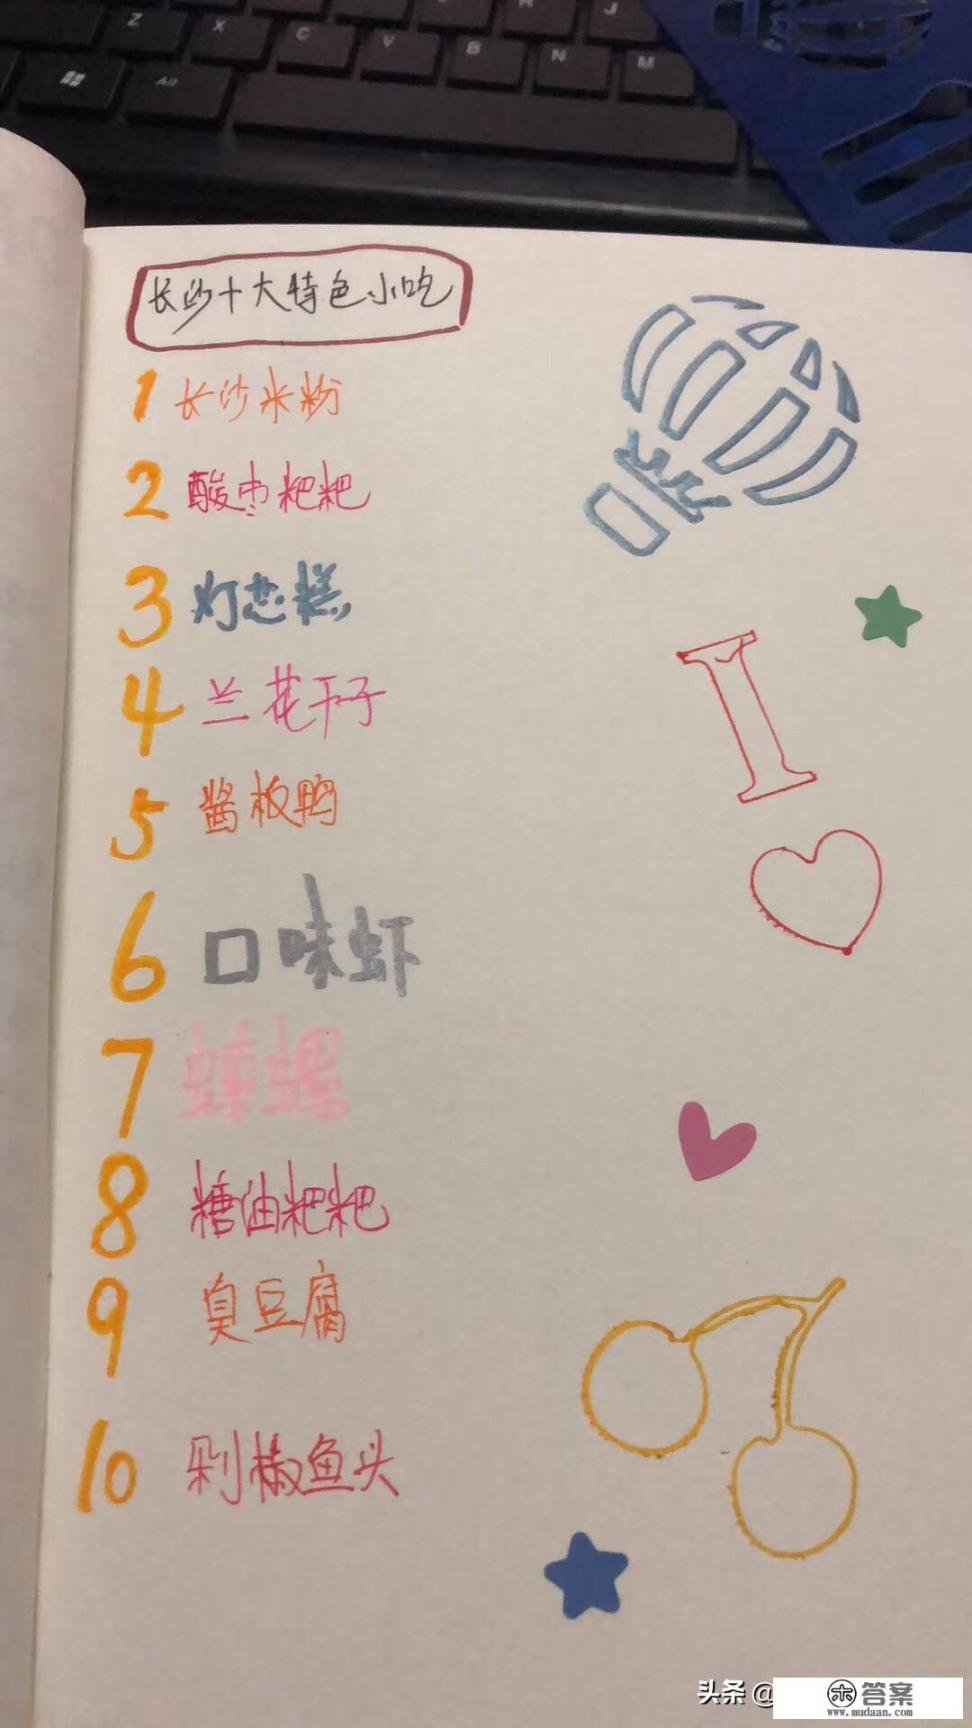 Z X C V B N M J
Alt
长沙十大特色小吃
1 长沙米粉
2 酸枣粑粑
3 灯芯糕
4 兰花干子
5 酱板鸭
6 口味虾
7 蟑螺
8 糖油粑粑
9 臭豆腐
10 剁椒鱼头
I
头条 @
答案
www.mudaan.com